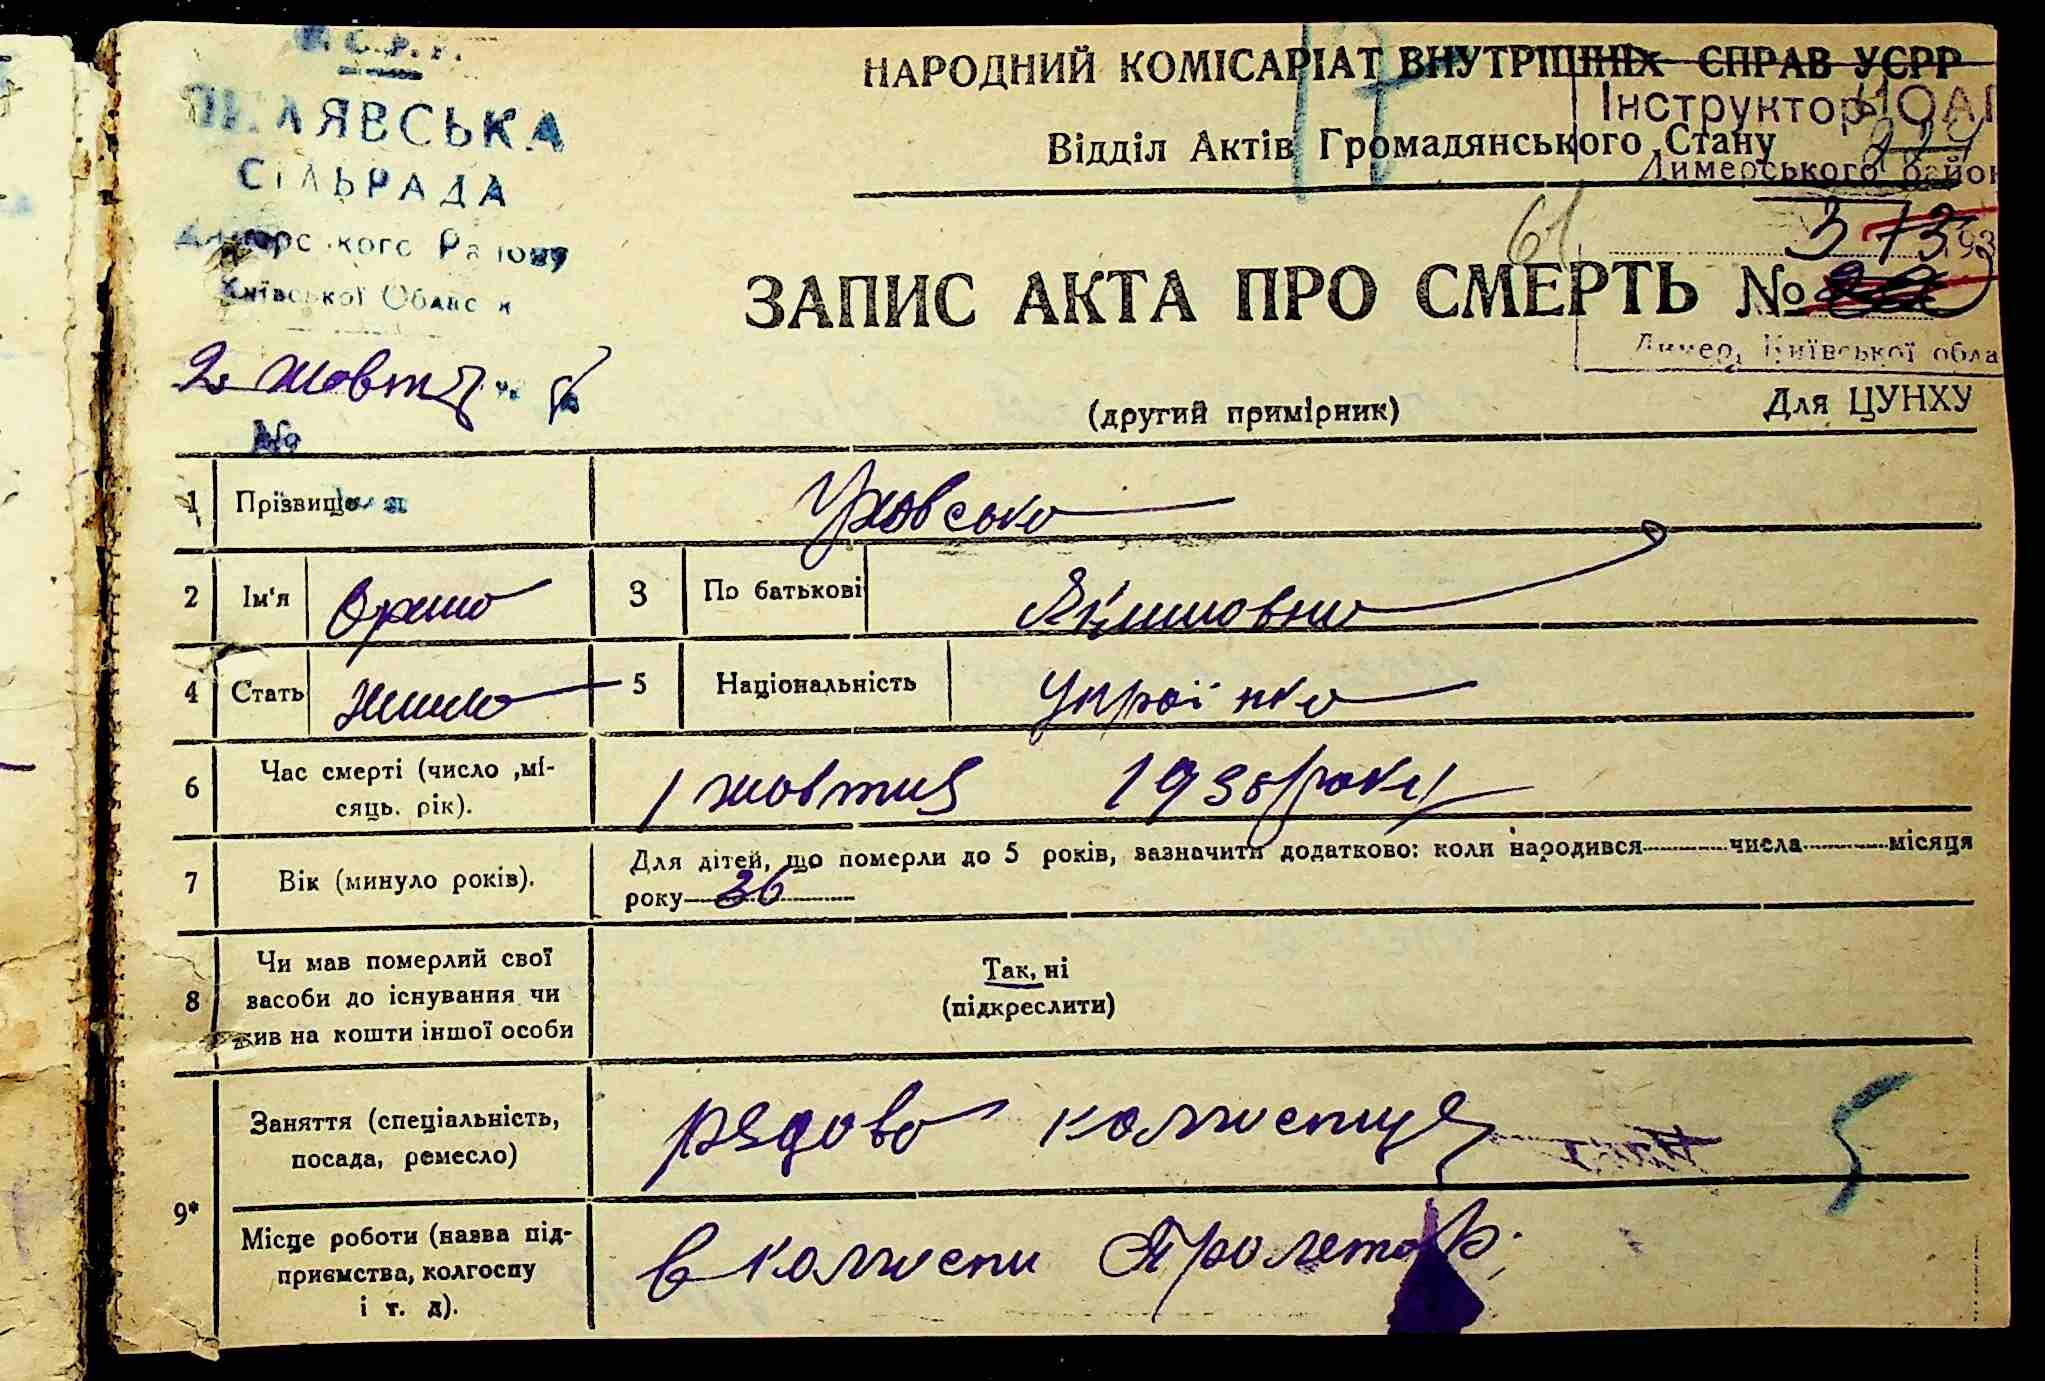 НАРОДНИЙ КОМІСАРІАТ ВНУТРІШНІХ СПРАВ УСРР
Відділ Актів Громадянського Стану
Інструктор ЮАГ
Димерського район
ЛЯВСЬКА
СІЛЬРАДА
Району
Київської
61
373 193
17
ЗАПИС АКТА ПРО СМЕРТЬ №
Димер, Київської обла
2 жовтня
№
(другий примірник)
Для ЦУНХУ
1 Прізвище
2 Ім'я
3 По батькові Якимовна
4 Стать жіноча
5 Національність Українка
6 Час смерті (число ,мі-
сяць. рік).
1 жовтня 193 року
7 Вік (минуло років).
Для дітей, що померли до 5 років, зазначити додатково: коли народився числа місяця
року 36
8 Чи мав померлий свої
засоби до існування чи
жив на кошти іншої особи
Так, ні
(підкреслити)
9*
Заняття (спеціальність,
посада, ремесло)
рядова колгоспниця
5
Місце роботи (назва під-
приємства, колгоспу
і т. д).
в колгоспи